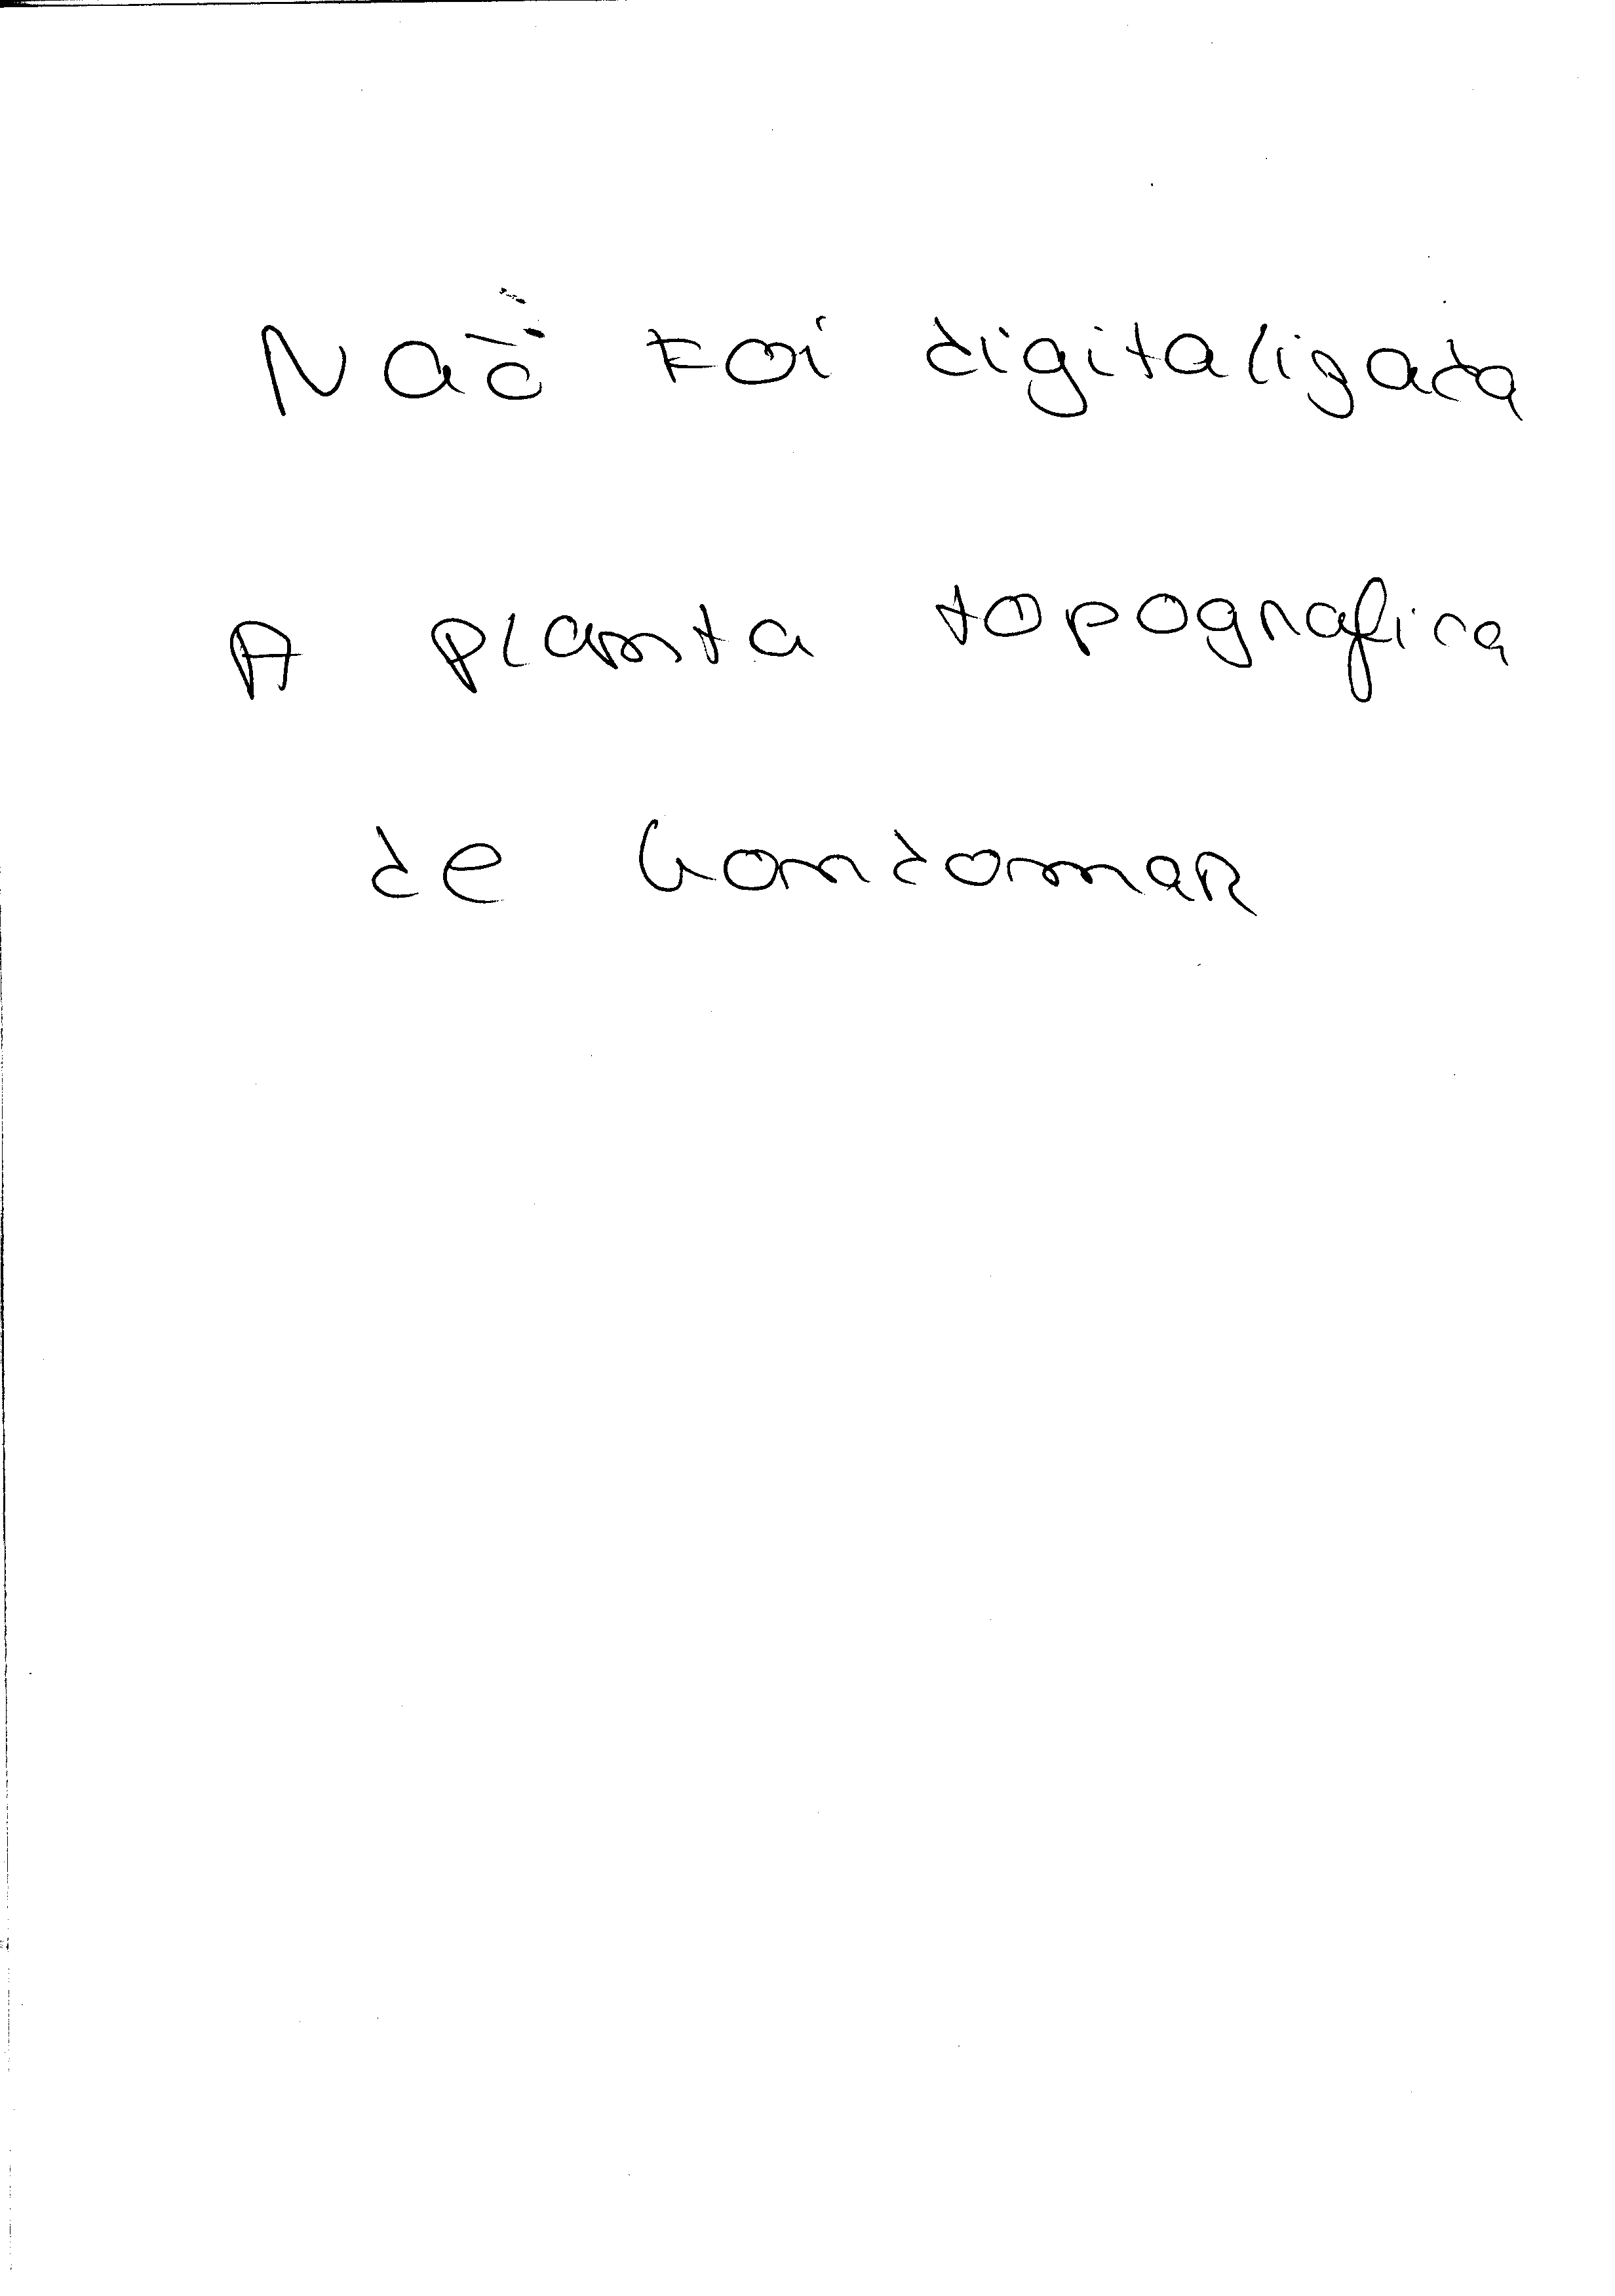 Não Foi digitalizada
A planta topografica
de Gondomar